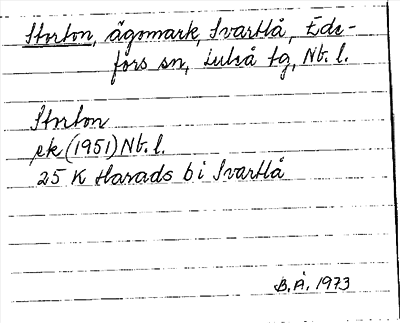 Storton, ägomark, Svartlå, Ede-
fors sn, Luleå tg, Nb. l.
Storton
ek (1951) Nb. l.
25 K Harads b i Svartlå
B.Å. 1973